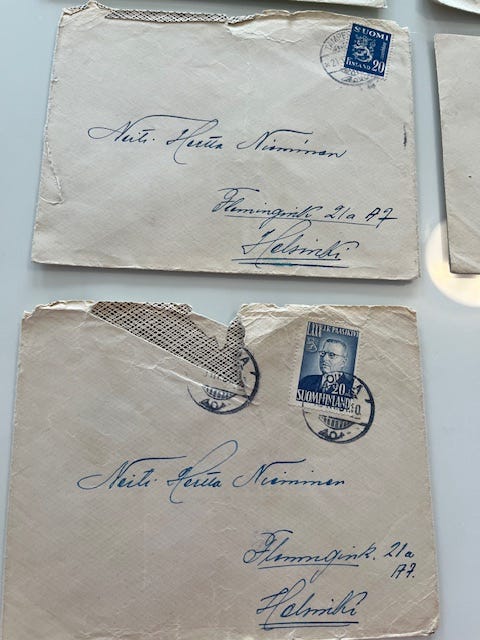 SUOMI
FINLAND 20
Neiti Hertta Nieminen
Flemingink. 21a A7
Helsinki
J.K. PAASIKIVI
20
SUOMI FINLAND
Neiti Hertta Nieminen
Flemingink. 21a
A7.
Helsinki